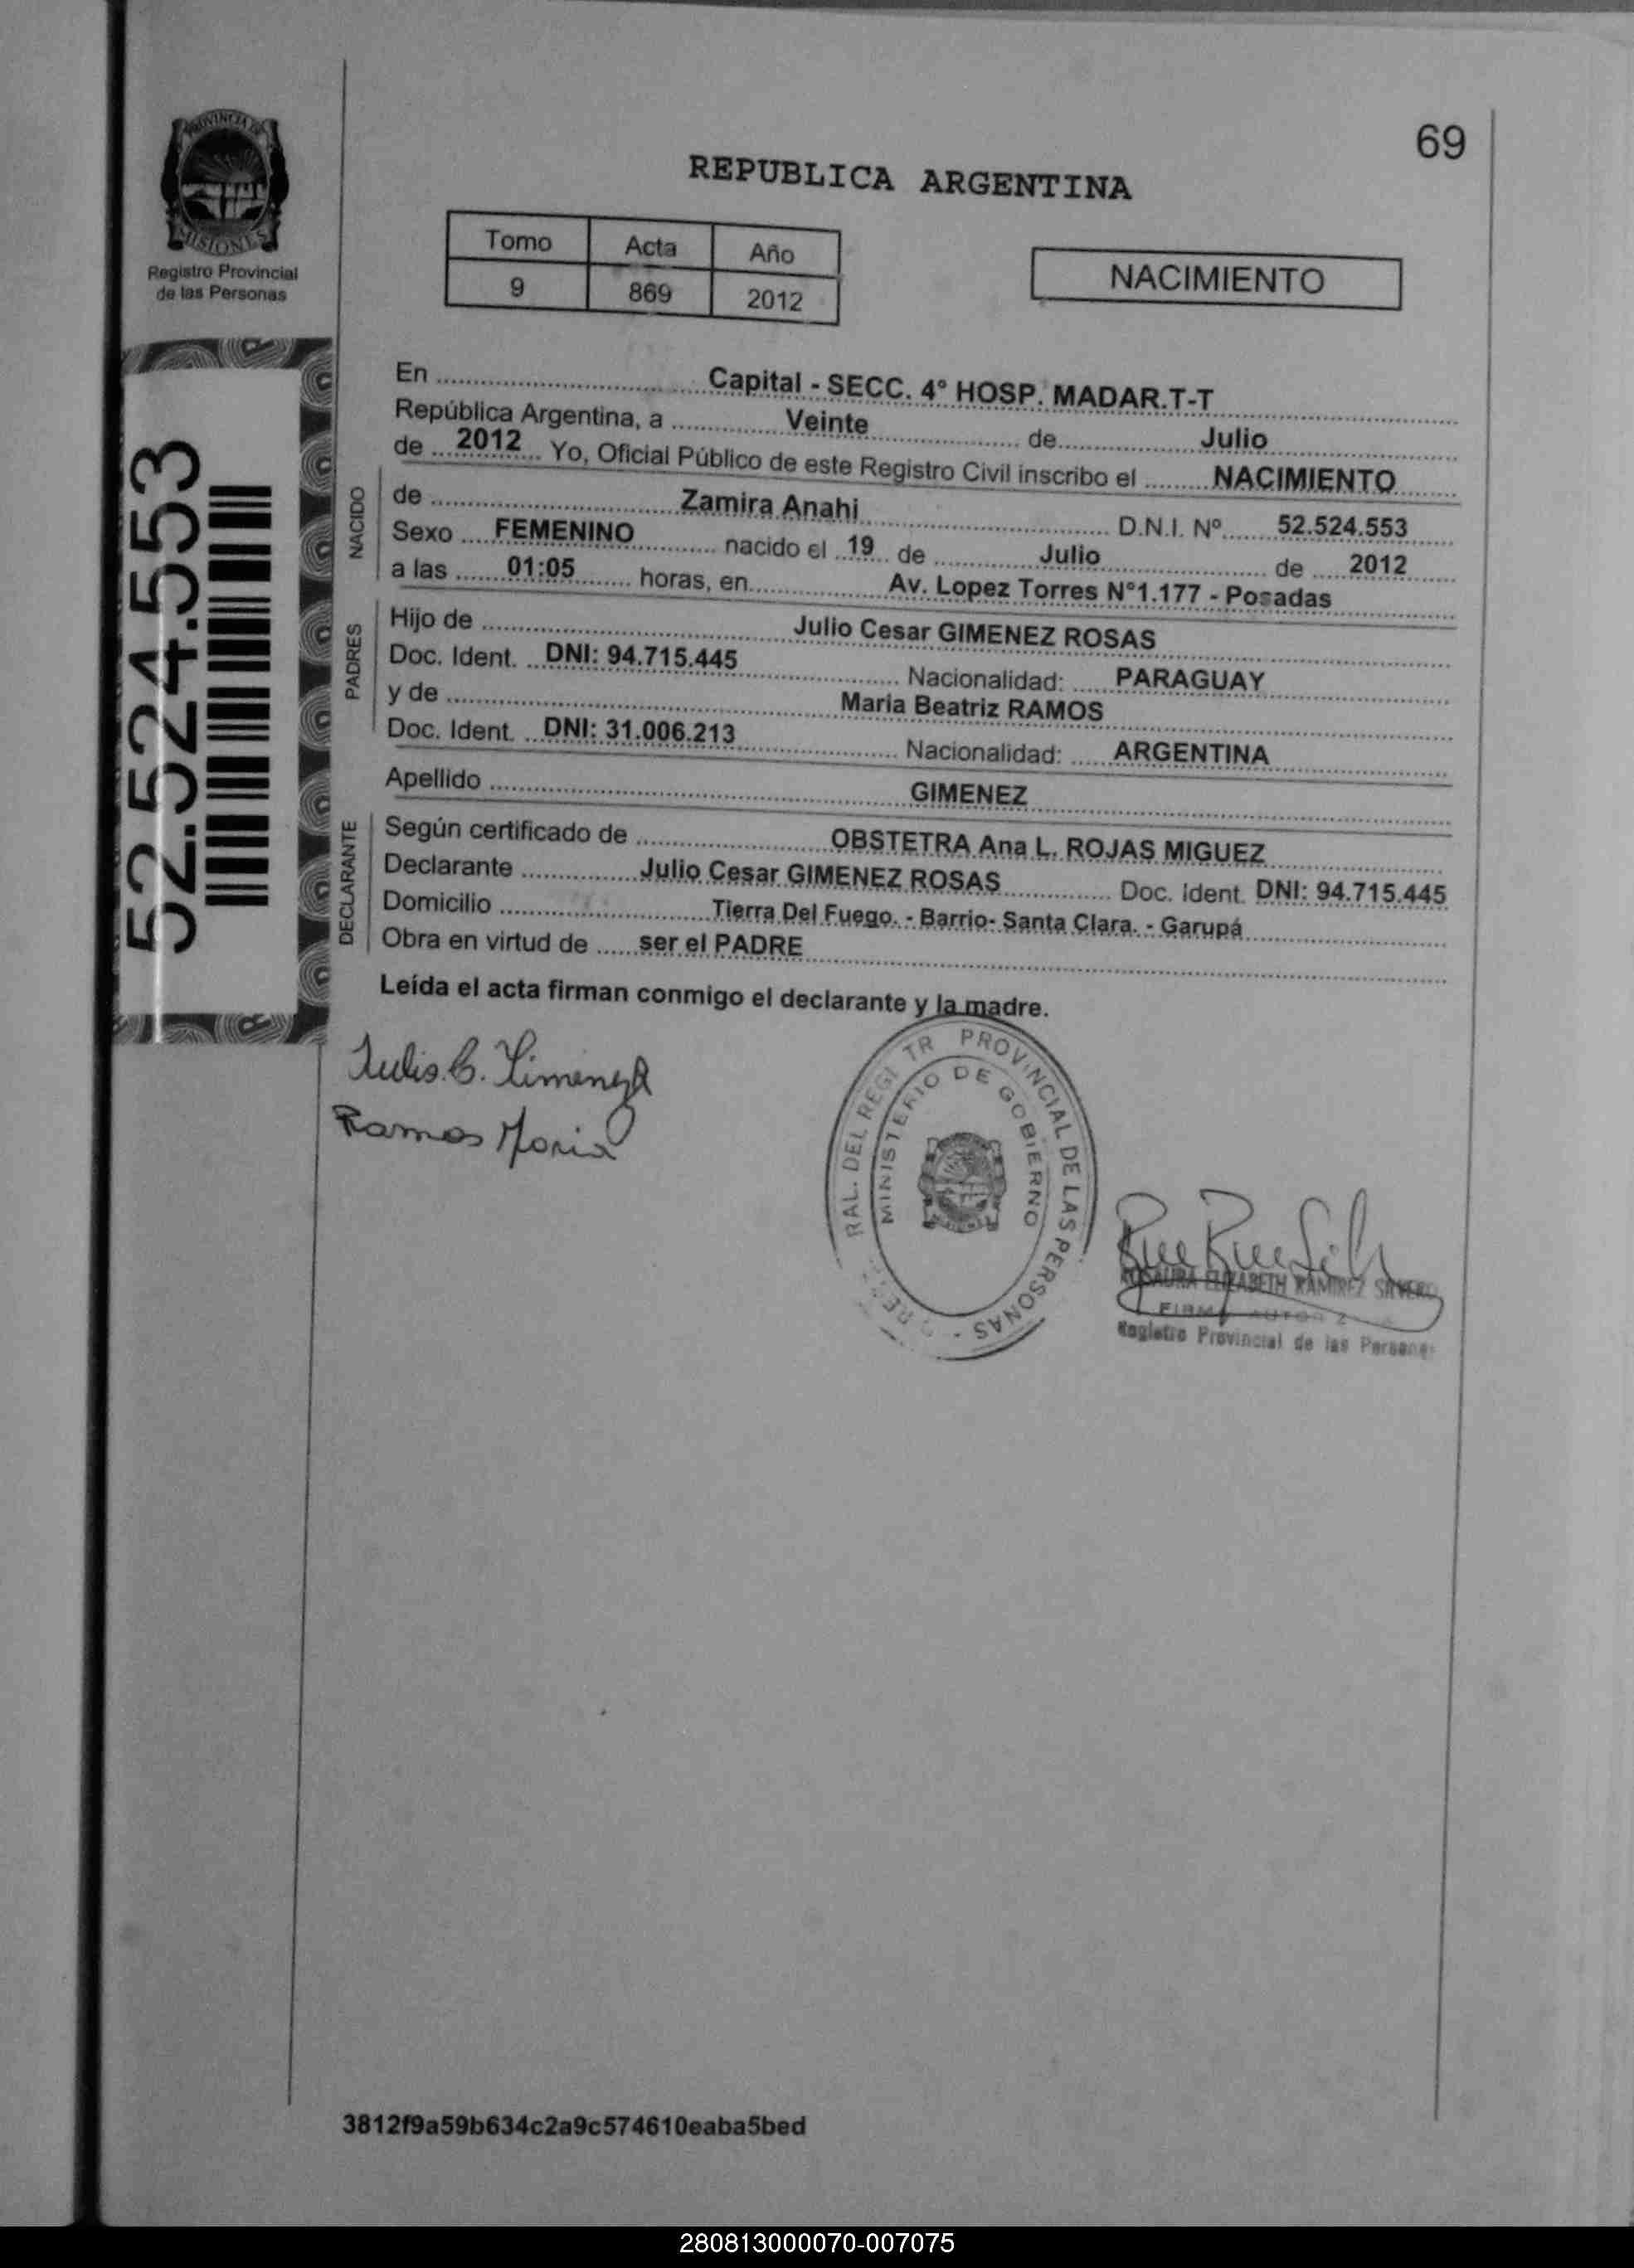 69
PROVINCIA DE
MISIONES
Registro Provincial
de las Personas
REPUBLICA ARGENTINA
Tomo Acta Año
9 869 2012
NACIMIENTO
52.524.553
En Capital - SECC. 4° HOSP. MADAR.T-T
República Argentina, a Veinte de Julio
de 2012 Yo, Oficial Público de este Registro Civil inscribo el NACIMIENTO
NACIDO
de Zamira Anahi D.N.I. Nº 52.524.553
Sexo FEMENINO nacido el 19 de Julio de 2012
a las 01:05 horas, en Av. Lopez Torres N°1.177 - Posadas
PADRES
Hijo de Julio Cesar GIMENEZ ROSAS
Doc. Ident. DNI: 94.715.445 Nacionalidad: PARAGUAY
y de Maria Beatriz RAMOS
Doc. Ident. DNI: 31.006.213 Nacionalidad: ARGENTINA
Apellido GIMENEZ
DECLARANTE
Según certificado de OBSTETRA Ana L. ROJAS MIGUEZ
Declarante Julio Cesar GIMENEZ ROSAS Doc. Ident. DNI: 94.715.445
Domicilio Tierra Del Fuego. - Barrio- Santa Clara. - Garupá
Obra en virtud de ser el PADRE
Leída el acta firman conmigo el declarante y la madre.
Julio C. Gimenez R
Ramos Maria
RAL. DEL REGI TR PROVINCIAL DE LAS PERSONAS
MINISTERIO DE GOBIERNO
ROSAURA ELIZABETH RAMIREZ SILVERO
FIRMA AUTORIZADA
Registro Provincial de las Personas
3812f9a59b634c2a9c574610eaba5bed
280813000070-007075